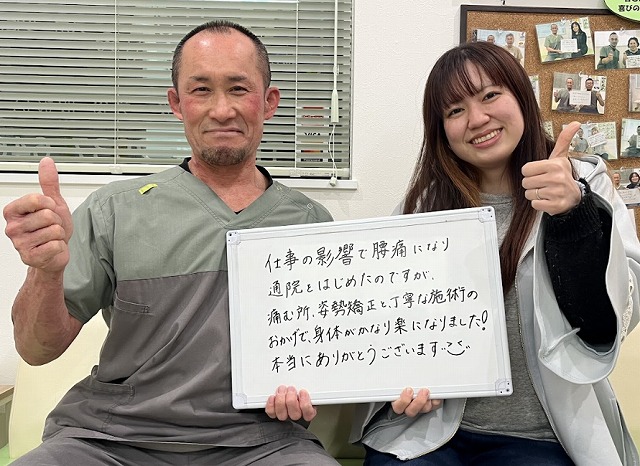 喜びの
仕事の影響で腰痛になり
通院をはじめたのですが、
痛む所、姿勢矯正と、丁寧な施術の
おかげで、身体がかなり楽になりました!
本当にありがとうございます